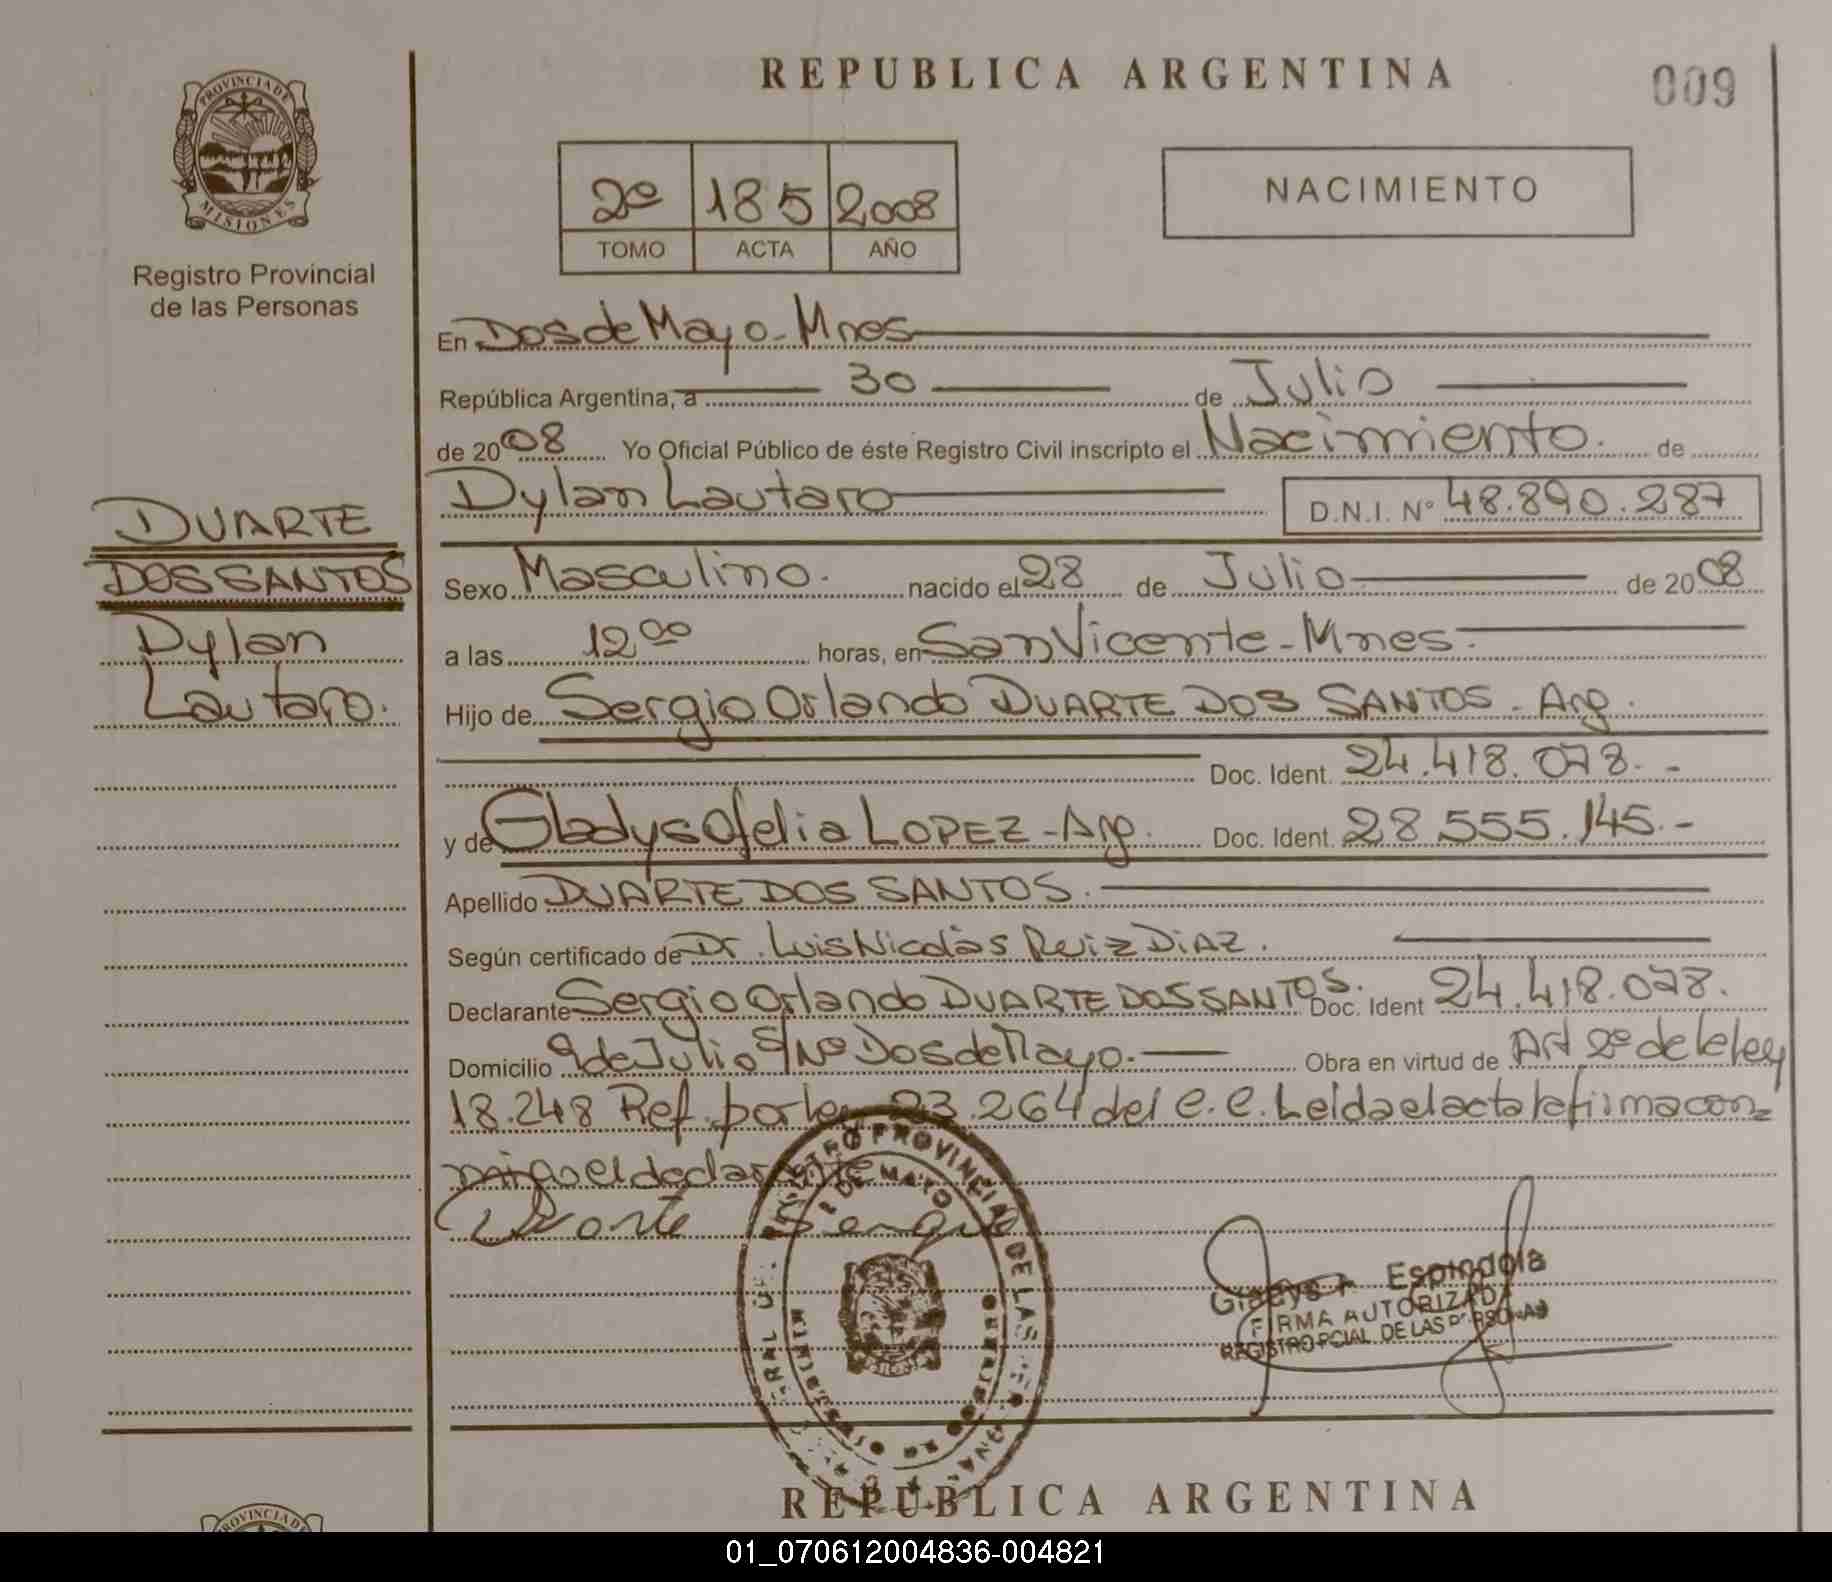 REPUBLICA ARGENTINA
009
PROVINCIA DE
MISIONES
Registro Provincial
de las Personas
2º 185 2008
TOMO ACTA AÑO
NACIMIENTO
En Dos de Mayo - Mnes
República Argentina, a 30 de Julio
de 2008 Yo Oficial Público de éste Registro Civil inscripto el Nacimiento. de
Dylan Lautaro D.N.I. Nº 48.890.287
DUARTE
DOS SANTOS
Dylan
Lautaro.
Sexo Masculino. nacido el 28 de Julio de 2008
a las 12 00 horas, en San Vicente - Mnes.
Hijo de Sergio Orlando DUARTE DOS SANTOS - Arg.
Doc. Ident. 24.418.078.-
y de Gladys Ofelia LOPEZ - Arg. Doc. Ident. 28.555.145.-
Apellido DUARTE DOS SANTOS.
Según certificado de Dr. Luis Nicolás Ruiz DIAZ.
Declarante Sergio Orlando DUARTE DOS SANTOS. Doc. Ident 24.418.078.
Domicilio 9 de Julio S/Nº Dos de Mayo. Obra en virtud de Art 2º de la ley
18.248 Ref. por ley 23.264 del C.C. Leida el acta la firma con=
migo el declarante
Duarte Sergio
REGISTRO PROVINCIAL DE LAS PERSONAS
2 DE MAYO
Gladys Espindola
FIRMA AUTORIZADA
REGISTRO PCIAL. DE LAS PERSONAS
REPUBLICA ARGENTINA
PROVINCIA DE
01_070612004836-004821